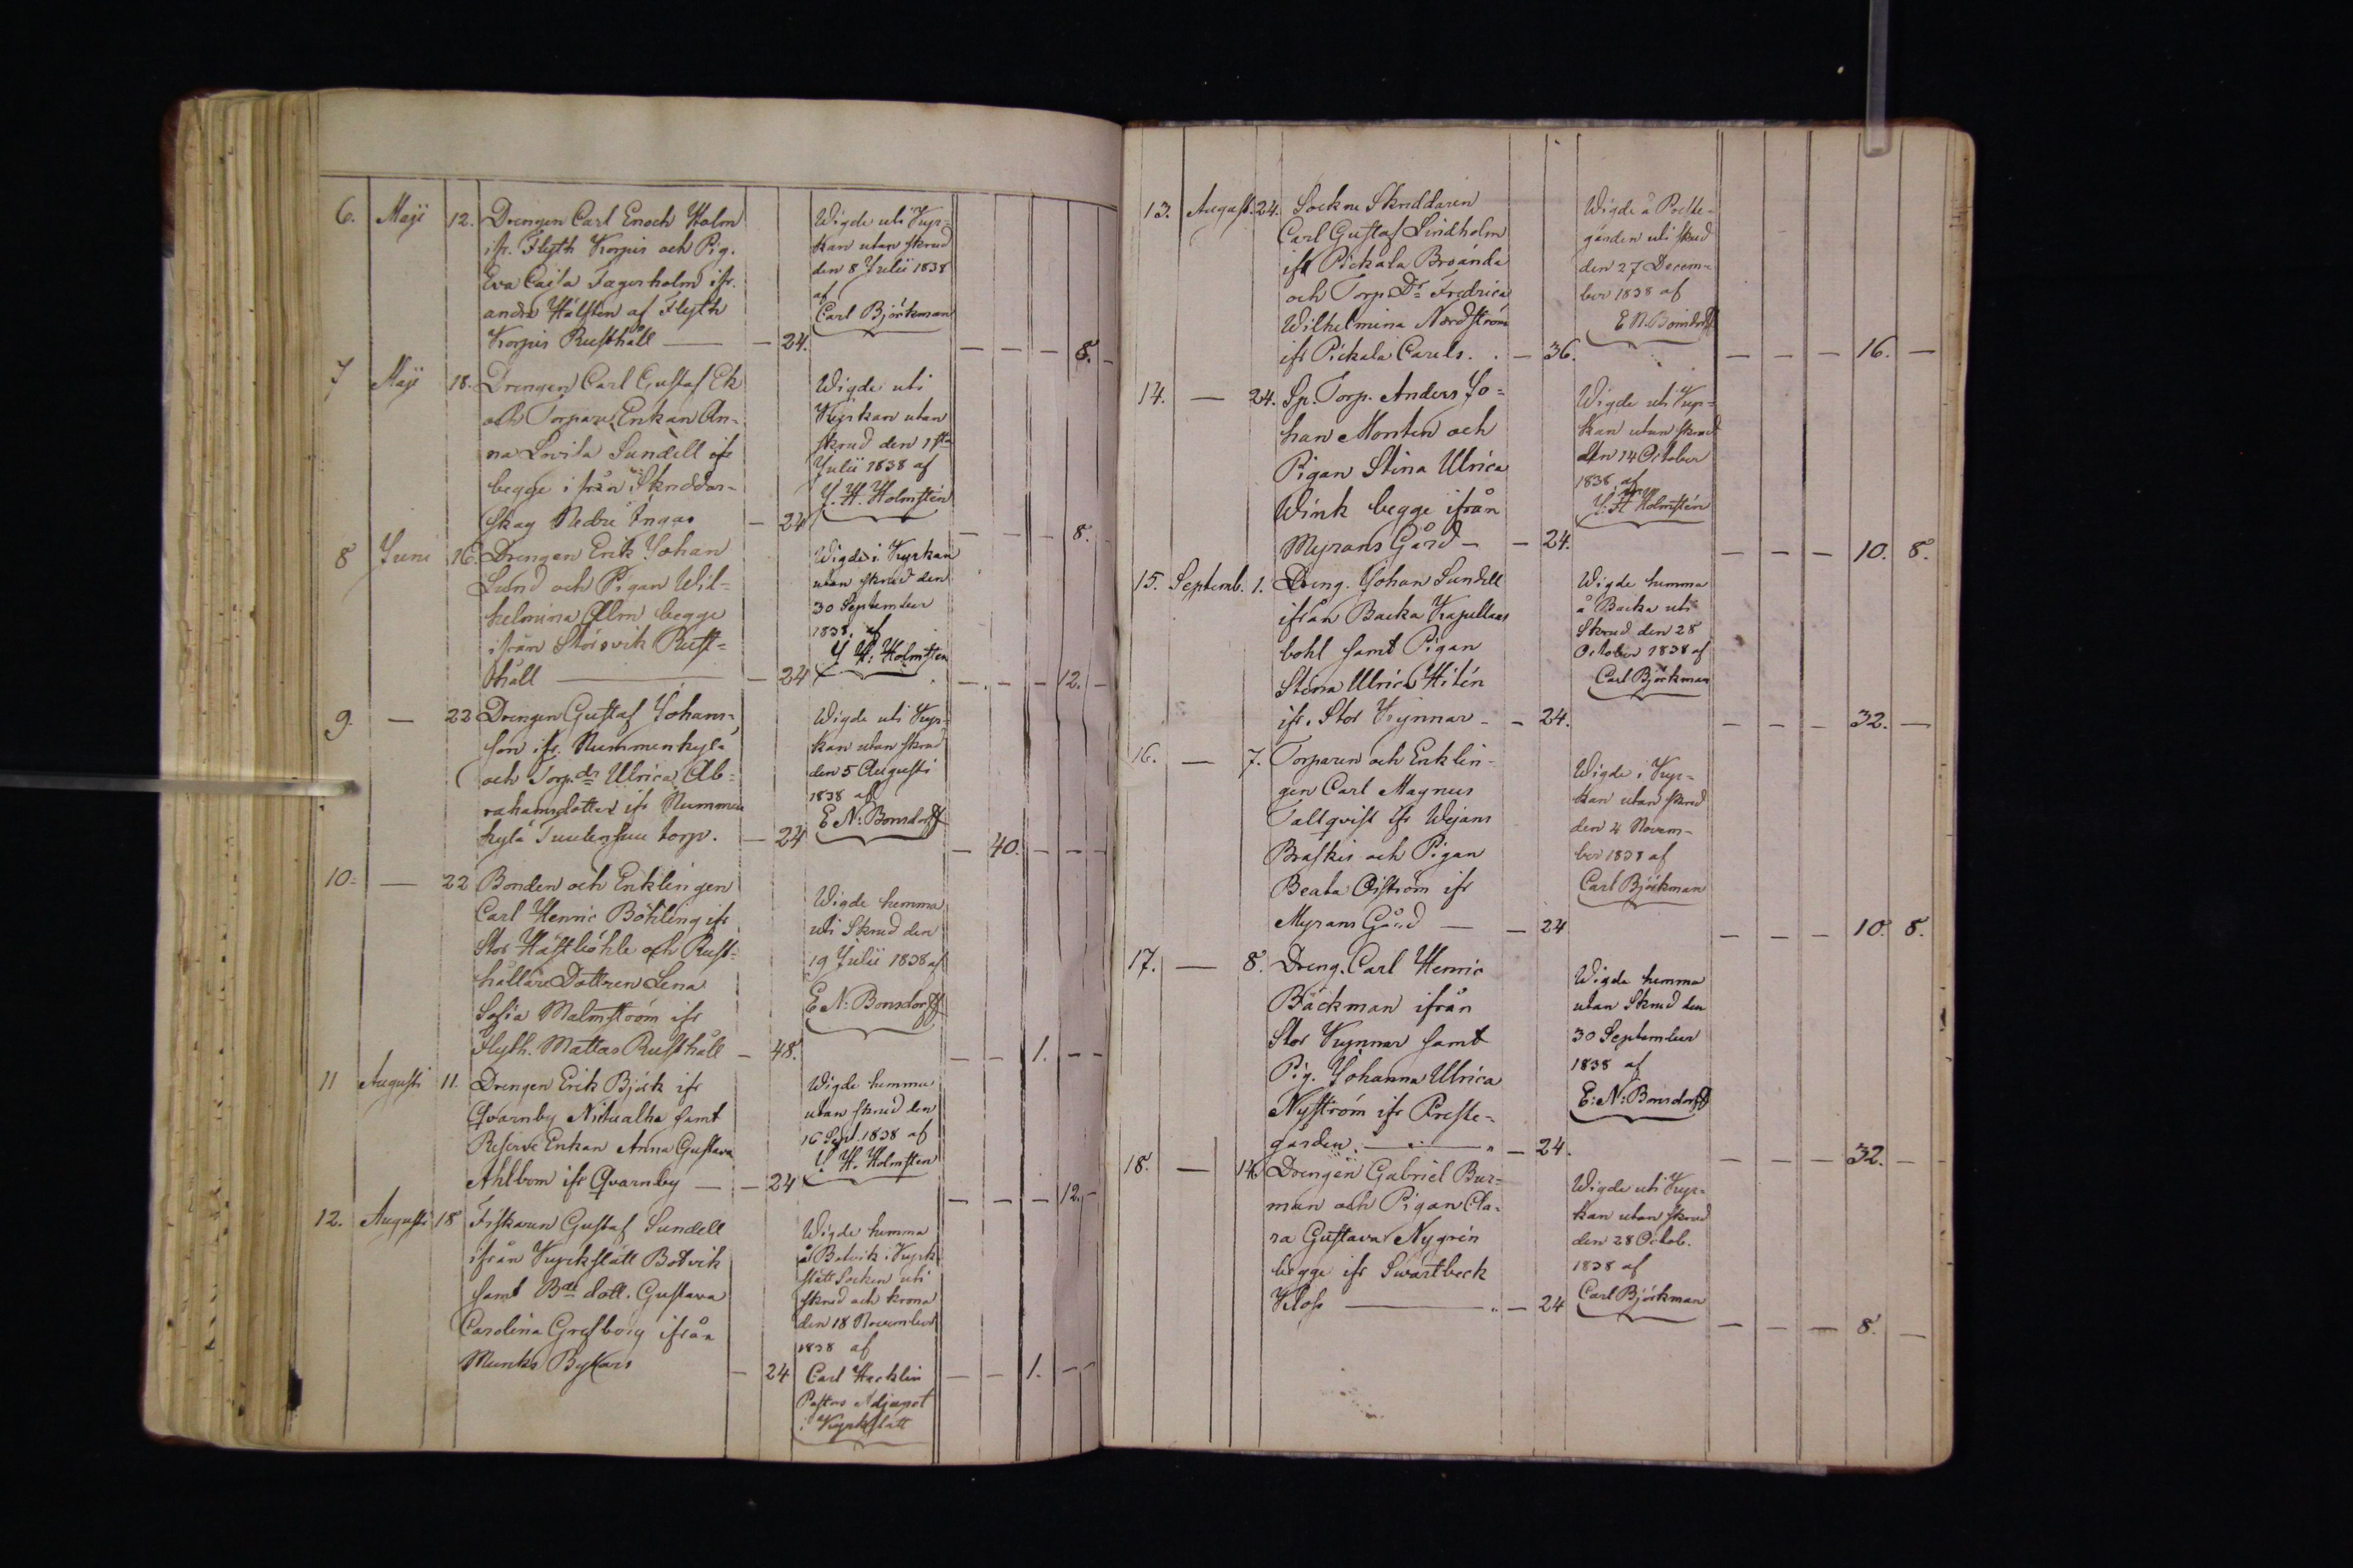 6. Maji 12. Drengen Carl Enoch Holm
ifr. Flyth Korpis och Pig.
Eva Caisa Fagerholm ifr.
andra Hälften af Flyth
Korpis Rusthåll — — 24.
Wigde uti Kyr-
kan utan skrud
den 8 Julii 1838
af
Carl Björkman
— — — 8. —
7 Maji 18. Drengen Carl Gustaf Ek
och Torpare Enkan An-
na Lovisa Sundell ifr
begge ifrån Skreddar-
skog Nedre Ingas — 24
Wigde uti
Kyrkan utan
skrud den 1sta
Julii 1838 af
Y. H. Holmstén
— — — 8. —
8 Juni 16. Drengen Erik Johan
Lund och Pigan Wil-
helmina Alm begge
ifrån Störsvik Rust-
håll — — 24
Wigde i Kyrkan
utan skrud den
30 September
1838. af
Y. H. Holmsten
— — — 12. —
9. — 22 Drengen Gustaf Johans-
son ifr. Nummenkylä
och Torp.dr Ulrica Ab-
rahamsdotter ifr Nummen
kylä torp. — 24
Wigde uti Kyr-
kan utan skrud
den 5 Augusti
1838 af
E N: Bonsdorff
— 40. — — —
10. — 22 Bonden och Enklingen
Carl Henric Böhling ifr
Stor Hästböhle och Rust-
hållare Dottren Lena
Sofia Malmström ifr
Flyth. Mattas Rusthåll — 48.
Wigde hemma
uti Skrud den
19 Julii 1838 af
E N: Bonsdorff
— — 1. — —
11 Augusti 11. Drengen Erik Björk ifr
Qvarnby samt
Reserve Enkan Anna Gustava
Ahlbom ifr Qvarnby — — 24
Wigde hemma
utan skrud den
16 Sept. 1838 af
Y. H. Holmsten
— — — 12. —
12. Augusti 18 Fiskaren Gustaf Sundell
ifrån Kyrkslätt Botvik
samt Bde dott. Gustava
Carolina Grefborg ifrån
Munks Bykars — 24
Wigde hemma
å Botvik i Kyrk
slätt Socken uti
skrud och krona
den 18 November
1838 af
Carl Hacklin
Pastors Adjunct
i Kyrkslätt
— — 1. — —
13. August. 24. Sockne Skreddaren
Carl Gustaf Lindholm
ifr Pickala Broända
och Torp. Dr Fredrica
Wilhelmina Nordström
ifr Pickala Carels. . — 36.
Wigde å Preste-
gården uti skrud
den 27 Decem-
ber 1838 af
E N. Bonsdorff
— — — 16. —
14. — 24. Sp. Torp. Anders Jo-
han Monten och
Pigan Stina Ulrica
Wink begge ifrån
Myrans Gård — — 24.
Wigde uti Kyr-
kan utan skrud
den 14 October
1838, af
Y. H Holmstén
— — — 10. 8.
15. Septemb. 1. Dreng. Johan Sundell
ifrån Backa Kapellans
bohl samt Pigan
Stina Ulrica Hitén
ifr. Stor Kynnar — — 24.
Wigde hemma
å Backa uti
Skrud den 28
October 1838 af
Carl Björkman
— — — 32. —
16. — 7. Torparen och Enklin-
gen Carl Magnus
Tallqvist ifr Wejans
Braskis och Pigan
Beata Öiström ifr
Myrans Gård — — 24
Wigde i Kyr-
kan utan skrud
den 4 Novem-
ber 1838 af
Carl Björkman
— — — 10. 8.
17. — 8. Dreng. Carl Henric
Bäckman ifrån
Stor Kynnar samt
Pig. Johanna Ulrica
Nyström ifr Preste-
gården. — — 24.
Wigde hemma
utan Skrud den
30 September
1838 af
E: N: Bonsdorff
— — — 32. —
18. — 14 Drengen Gabriel Bur-
man och Pigan Cla-
ra Gustava Nygrén
begge ifr Swartbeck
Kloss — — 24
Wigde uti Kyr-
kan utan skrud
den 28 Octob.
1838 af
Carl Björkman
— — — 8. —